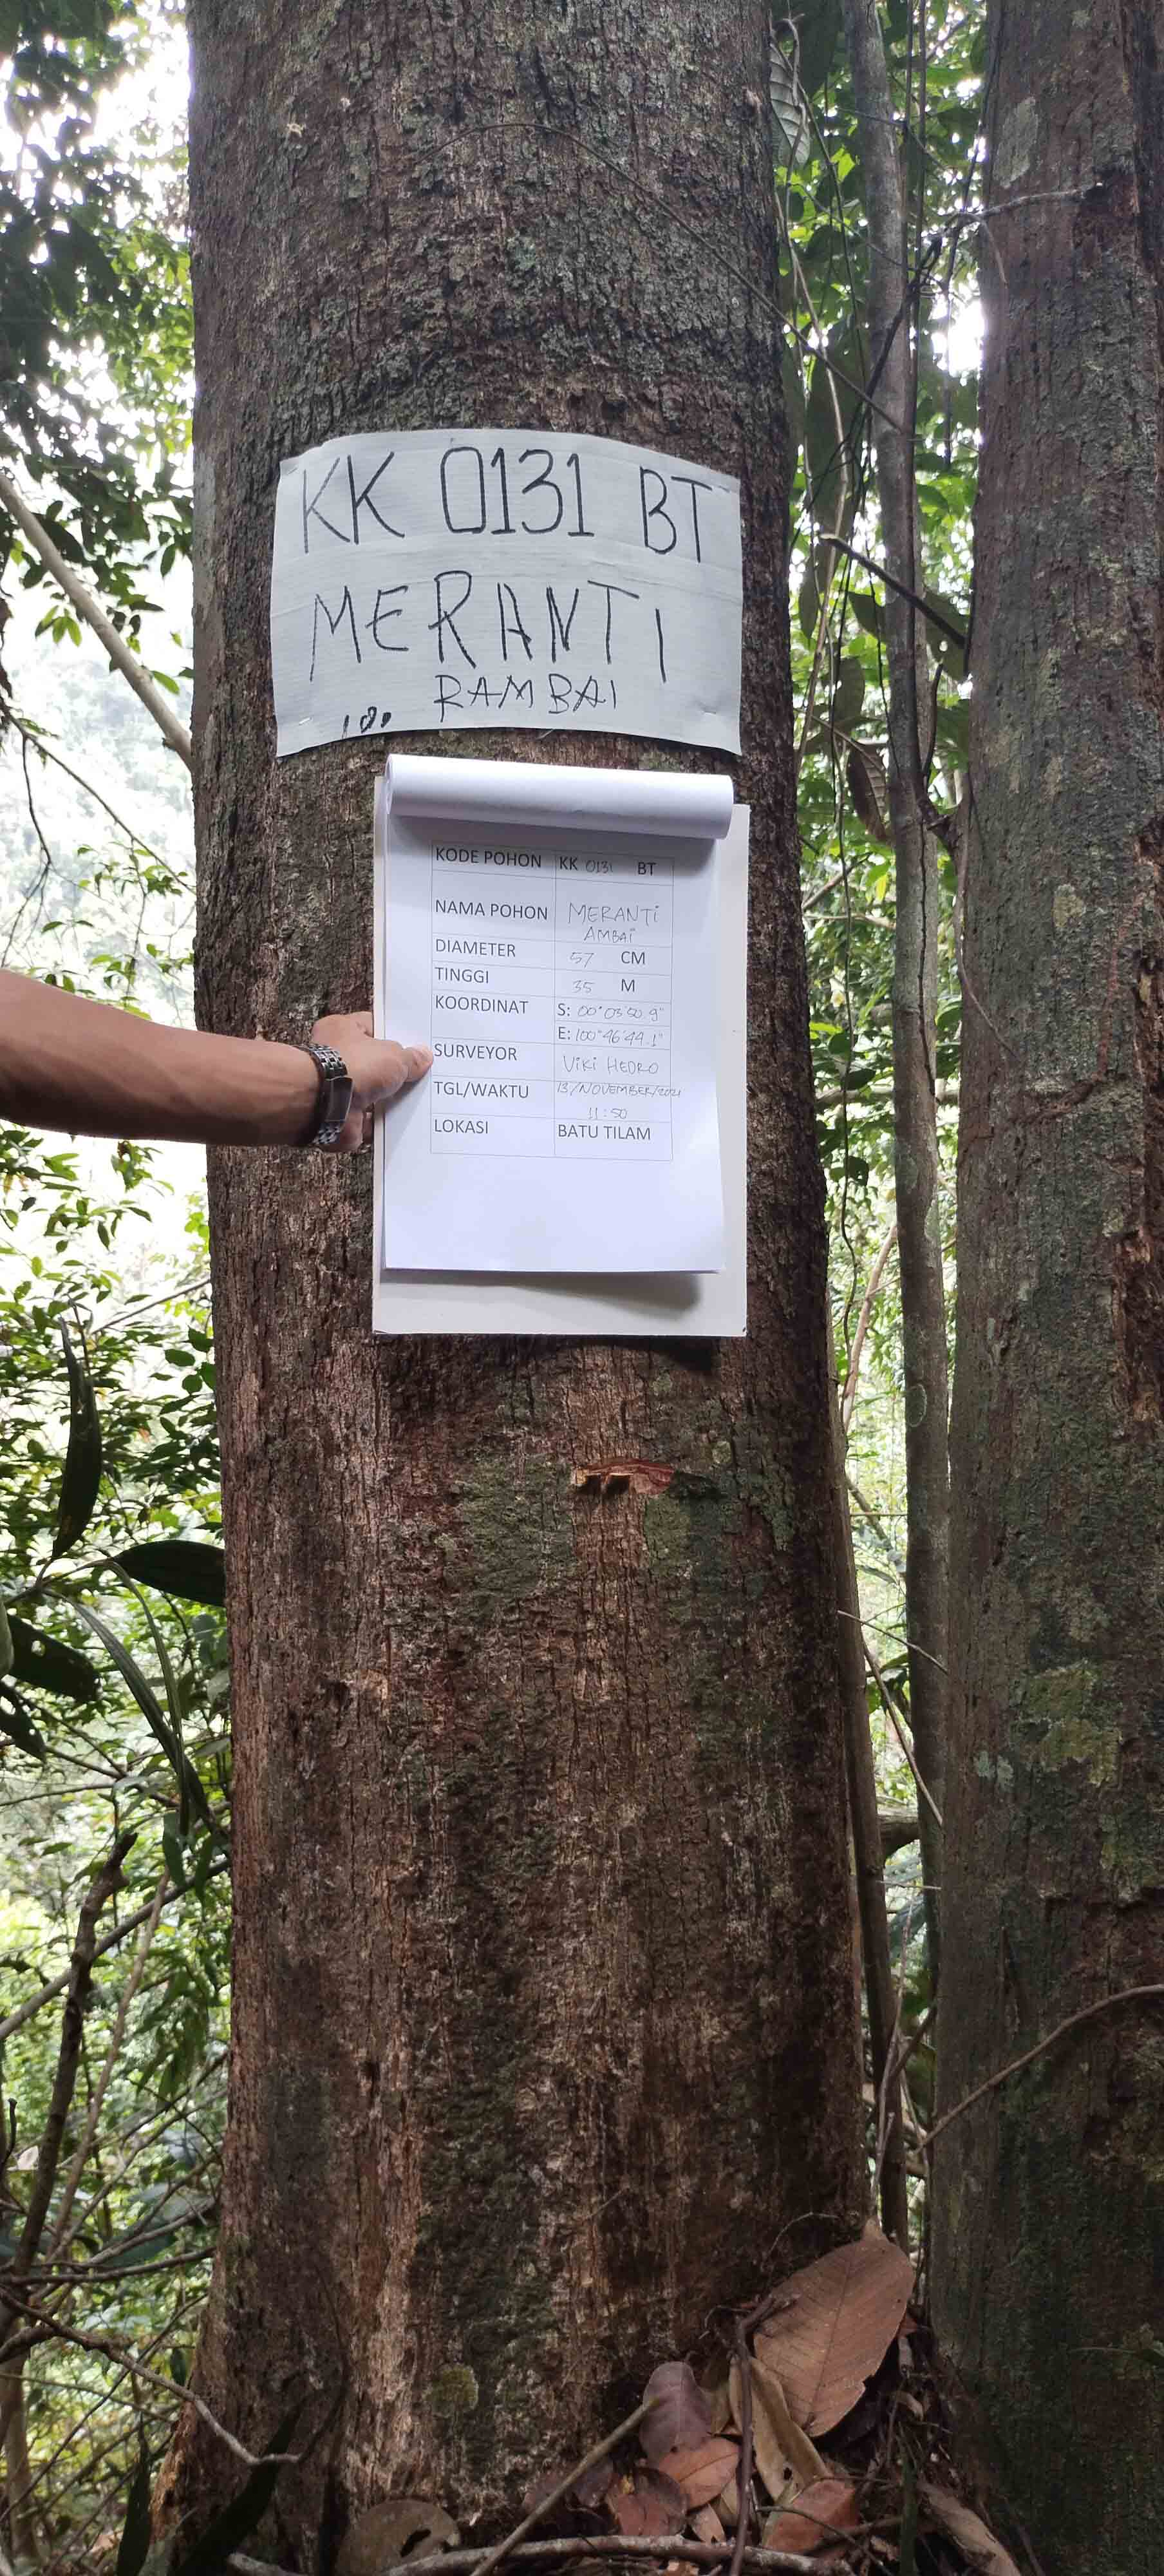 KK 0131 BT
MERANTI
RAMBAI
180
KODE POHON KK 0131 BT
NAMA POHON MERANTI
AMBAI
DIAMETER 57 CM
TINGGI 35 M
KOORDINAT S: 00° 03' 50.9"
E: 100° 46' 44.1"
SURVEYOR VIKI HEDRO
TGL/WAKTU 13/NOVEMBER/2021
11:50
LOKASI BATU TILAM